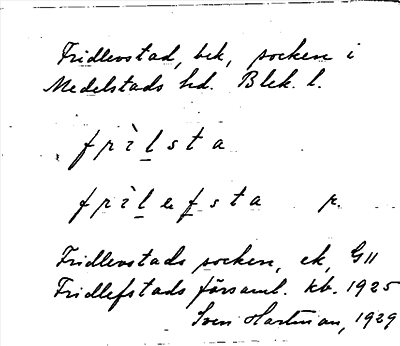 Fridlevstad, bek, socken i
Medelstads hd. Blek. l.
frìlsta
frìlefsta r.
Fridlevstads socken, ek, GII
Fridlefstads församl. kb. 1925
Sven Hartman, 1929